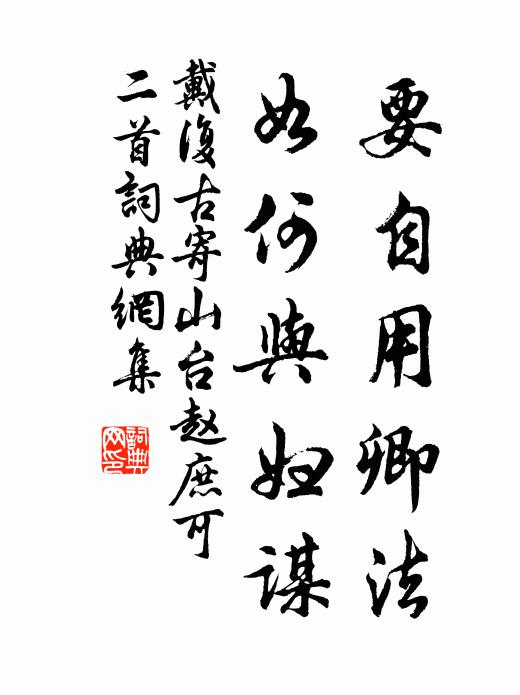 要自用卿法
如何與婦謀
戴復古寄山台赵庶可
二首詞典網集
詞典
网印